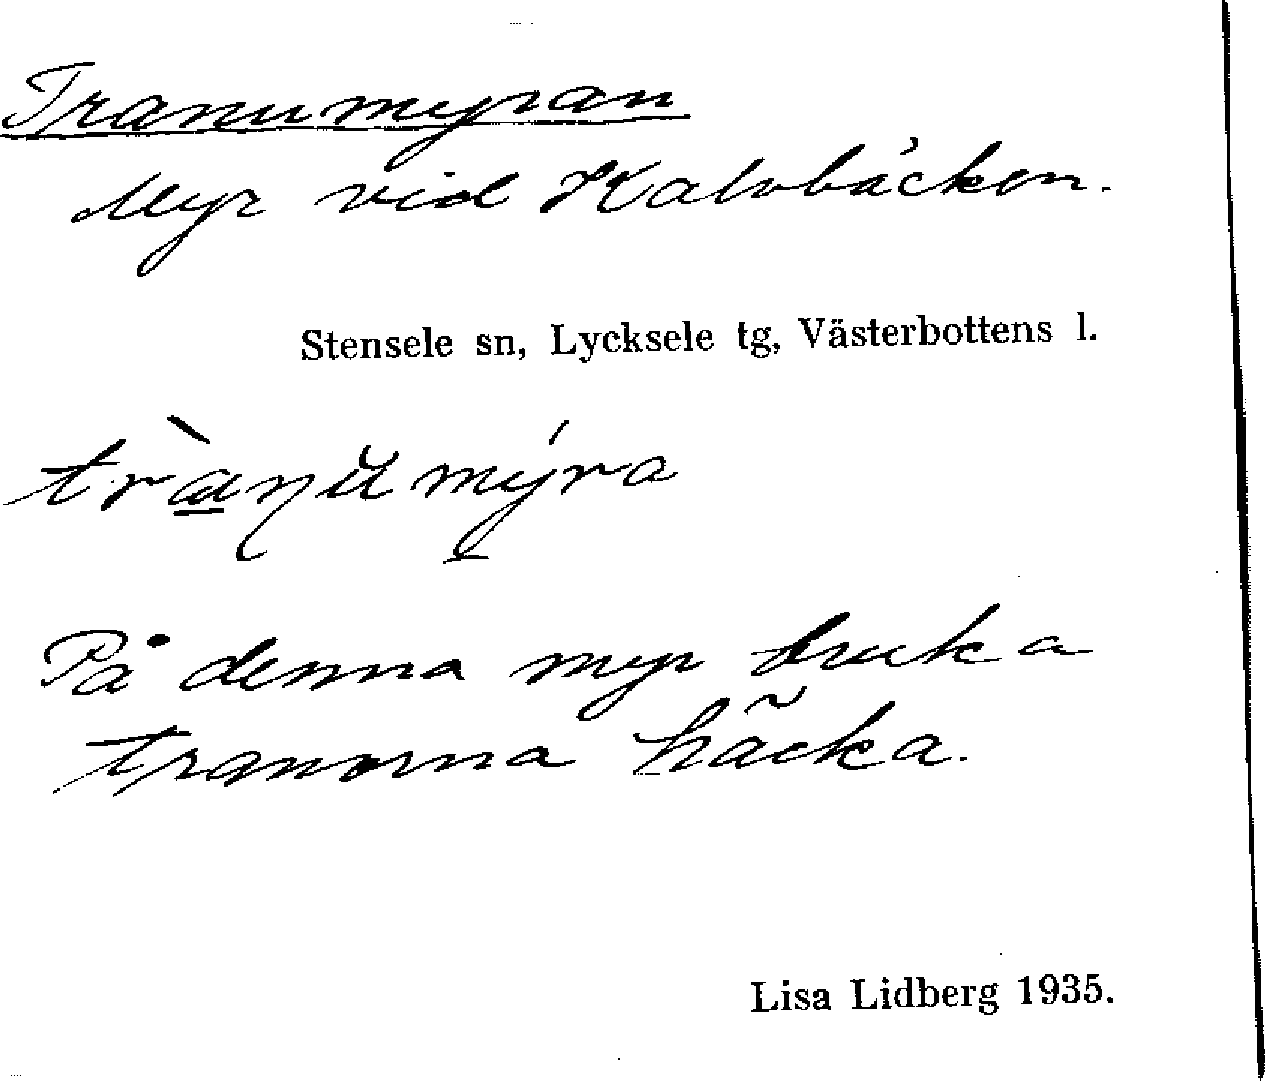 Tranumyran
Myr vid Kalvbäcken.
Stensele sn, Lycksele tg, Västerbottens l.
trànŭmýra
På denna myr bruka
tranorna häcka.
Lisa Lidberg 1935.